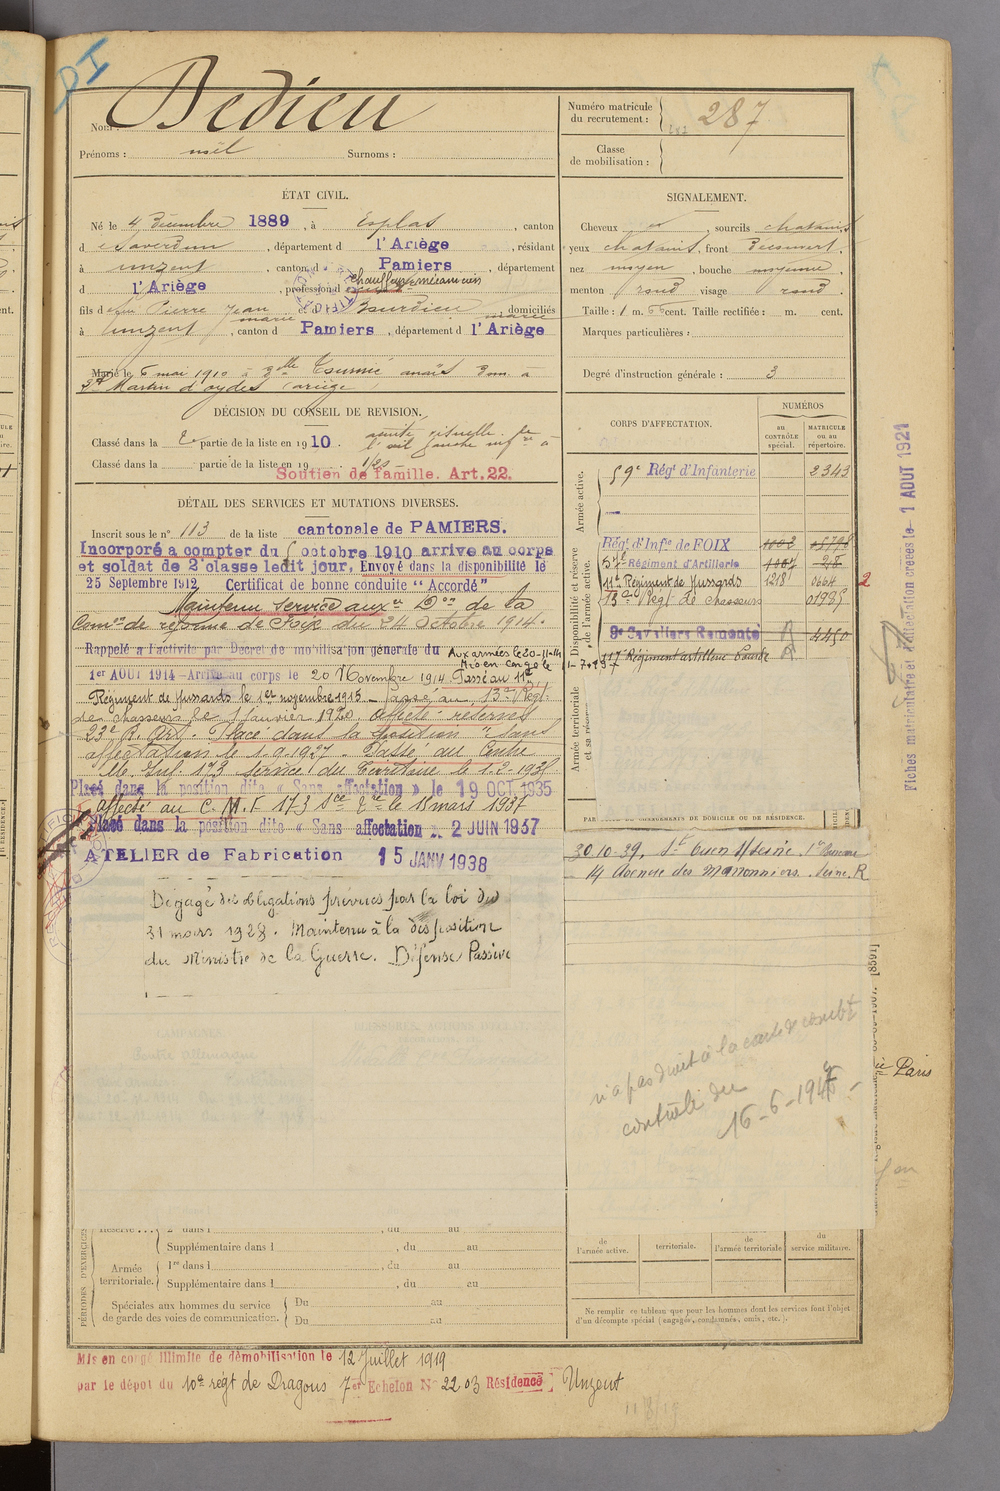 DI
Nom : Bedieu
Prénoms : noël Surnoms :
Numéro matricule du recrutement : 287
Classe de mobilisation :
ÉTAT CIVIL.
Né le 4 Décembre 1889, à Esplas, canton
d e Saverdun, département d l'Ariège, résidant
à unzent, canton d Pamiers, département
d l'Ariège, profession d chauffeur-mécanicien
fils d Pierre Jean et d Bourdieu marie domiciliés
à unzent, canton d Pamiers, département d l'Ariège
Marié le 6 mai 1910 à Delle Tournié anaïs Dom. à
St Martin d'oydes (ariège)
SIGNALEMENT.
Cheveux , sourcils chatains
yeux chatains, front Découvert
nez moyen, bouche moyenne,
menton rond visage rond
Taille : 1 m. 66 cent. Taille rectifiée : m. cent.
Marques particulières :
Degré d'instruction générale : 3
DÉCISION DU CONSEIL DE REVISION.
Classé dans la 2e partie de la liste en 1910. acuité visuelle de
l'œil gauche infre à
Classé dans la partie de la liste en 19 . 1/20
Soutien de famille. Art. 22.
DÉTAIL DES SERVICES ET MUTATIONS DIVERSES.
Inscrit sous le n° 113 de la liste cantonale de PAMIERS.
Incorporé a compter du octobre 1910 arrive au corps
et soldat de 2e classe ledit jour, Envoyé dans la disponibilité le
25 Septembre 1912 Certificat de bonne conduite "Accordé"
Maintenu service auxre Don de la
Comon de réforme de Foix du 24 Octobre 1914.
Rappelé a l'activité par Decret de mobilisation générale du Aux armées le 20-11-14
Mis en congé le 11-7-1937
1er AOUT 1914 – Arrivé au corps le 20 Novembre 1914. Passé au 11e
Régiment de Hussards le 1er novembre 1915 – passé au 13e Régt
de chasseurs le 1 janvier 1920. Affecté réserves
23e R. Art. Placé dans la position "sans
affectation" le 1.9.1927. Passé au Centre
Mb. Inf. 173 service du Territoire le 1.2.1935
Placé dans la position dite « Sans affectation » le 19 OCT. 1935
affecté au C. M. I 173 le 18 mars 1937
Placé dans la position dite « Sans affectation » 2 JUIN 1937
ATELIER de Fabrication 15 JANV 1938
Dégagé des obligations prévues par la loi du
31 mars 1928. Maintenu à la disposition
du Ministre de la Guerre. Défense Passive
CORPS D'AFFECTATION.
NUMÉROS
au CONTRÔLE spécial.
MATRICULE ou au répertoire.
Armée active.
59e Régt d'Infanterie 2343
Disponibilité et réserve de l'armée active.
Régt d'Infie de FOIX 1002
57e Régiment d'Artillerie 1007 28
11e Régiment de Hussards 1218 0664 2
13e Régt de chasseurs 01935
9e Cavaliers Remonte R 4450
117 Régiment artillerie Lourde R
Armée territoriale et sa réserve
Fiches matriculaire et d'affectation créées le - 1 AOUT 1921
CHANGEMENTS DE DOMICILE OU DE RÉSIDENCE.
30.10.39, St Ouen s/Seine,
14 Avenue des Marronniers. Seine. R
Paris
n'a pas droit à la carte du combt
contrôlé du
16-6-1947
RÉSERVE
2e dans l , du au
Supplémentaire dans l , du au
PÉRIODES D'EXERCICES
Armée territoriale.
1re dans l , du au
Supplémentaire dans l , du au
Spéciales aux hommes du service de garde des voies de communication.
Du au
Du au
de l'armée active.
territoriale.
de l'armée territoriale
du service militaire.
Ne remplir ce tableau que pour les hommes dont les services font l'objet
d'un décompte spécial (engagés, condamnés, omis, etc.).
Mis en congé illimité de démobilisation le 12 Juillet 1919
par le dépot du 10e régt de Dragons 7er Echelon N° 2203 Résidence Unzent